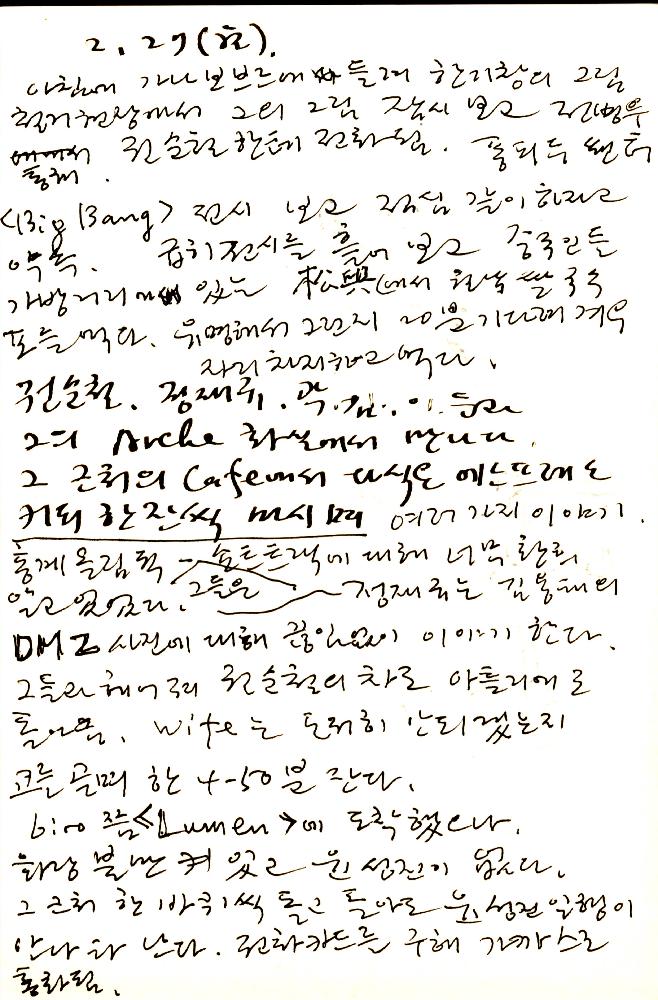 2. 27 (화).
아침에 가나 보브르에 들러 한기창의 그림
철거현장에서 그의 그림 잠시 보고 전병우
통해 권순철한테 전화됨. 퐁피두 쎈터
<Big Bang> 전시 보고 점심 같이 하자고
약속. 급히 전시를 훑어 보고 중국인들
가방거리에 있는 松興에서 월남 쌀국수
포를 먹다. 유명해서 그런지 20분 기다려 겨우
자리 차지하고 먹다.
권순철. 정재규. 곽. 김. 이 등과
그의 Arche 화실에서 만나다.
그 근처의 Cafe에서 다식은 에스프레소
커피 한잔씩 마시며 여러가지 이야기.
동계올림픽 - 숏트트랙에 대해 너무 환히
알고 있었다. 그들은 정재규는 김봉태의
DMZ 사진에 대해 끊임없이 이야기 한다.
그들과 헤어져 권순철의 차로 아틀리에로
돌아옴. Wife는 도저히 안되겠는지
코를 골며 한 4-50분 잔다.
6:00 쯤 <Lumen>에 도착했으나.
화랑 불만 켜 있고 원성진이 없다.
그 근처 한 바퀴씩 돌고 돌아도 원성진 일행이
안나타난다. 전화카드를 구해 가까스로
통화됨.